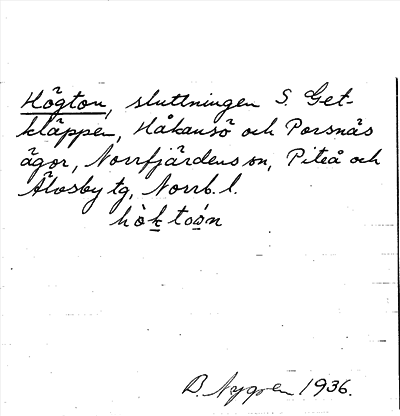 Högton, sluttningen S. Get-
kläppen, Håkansö och Porsnäs
ägor, Norrfjärdens sn, Piteå och
Älvsby tg, Norrb. l.
hòk̲to̲ó̲n
B. Nygren 1936.